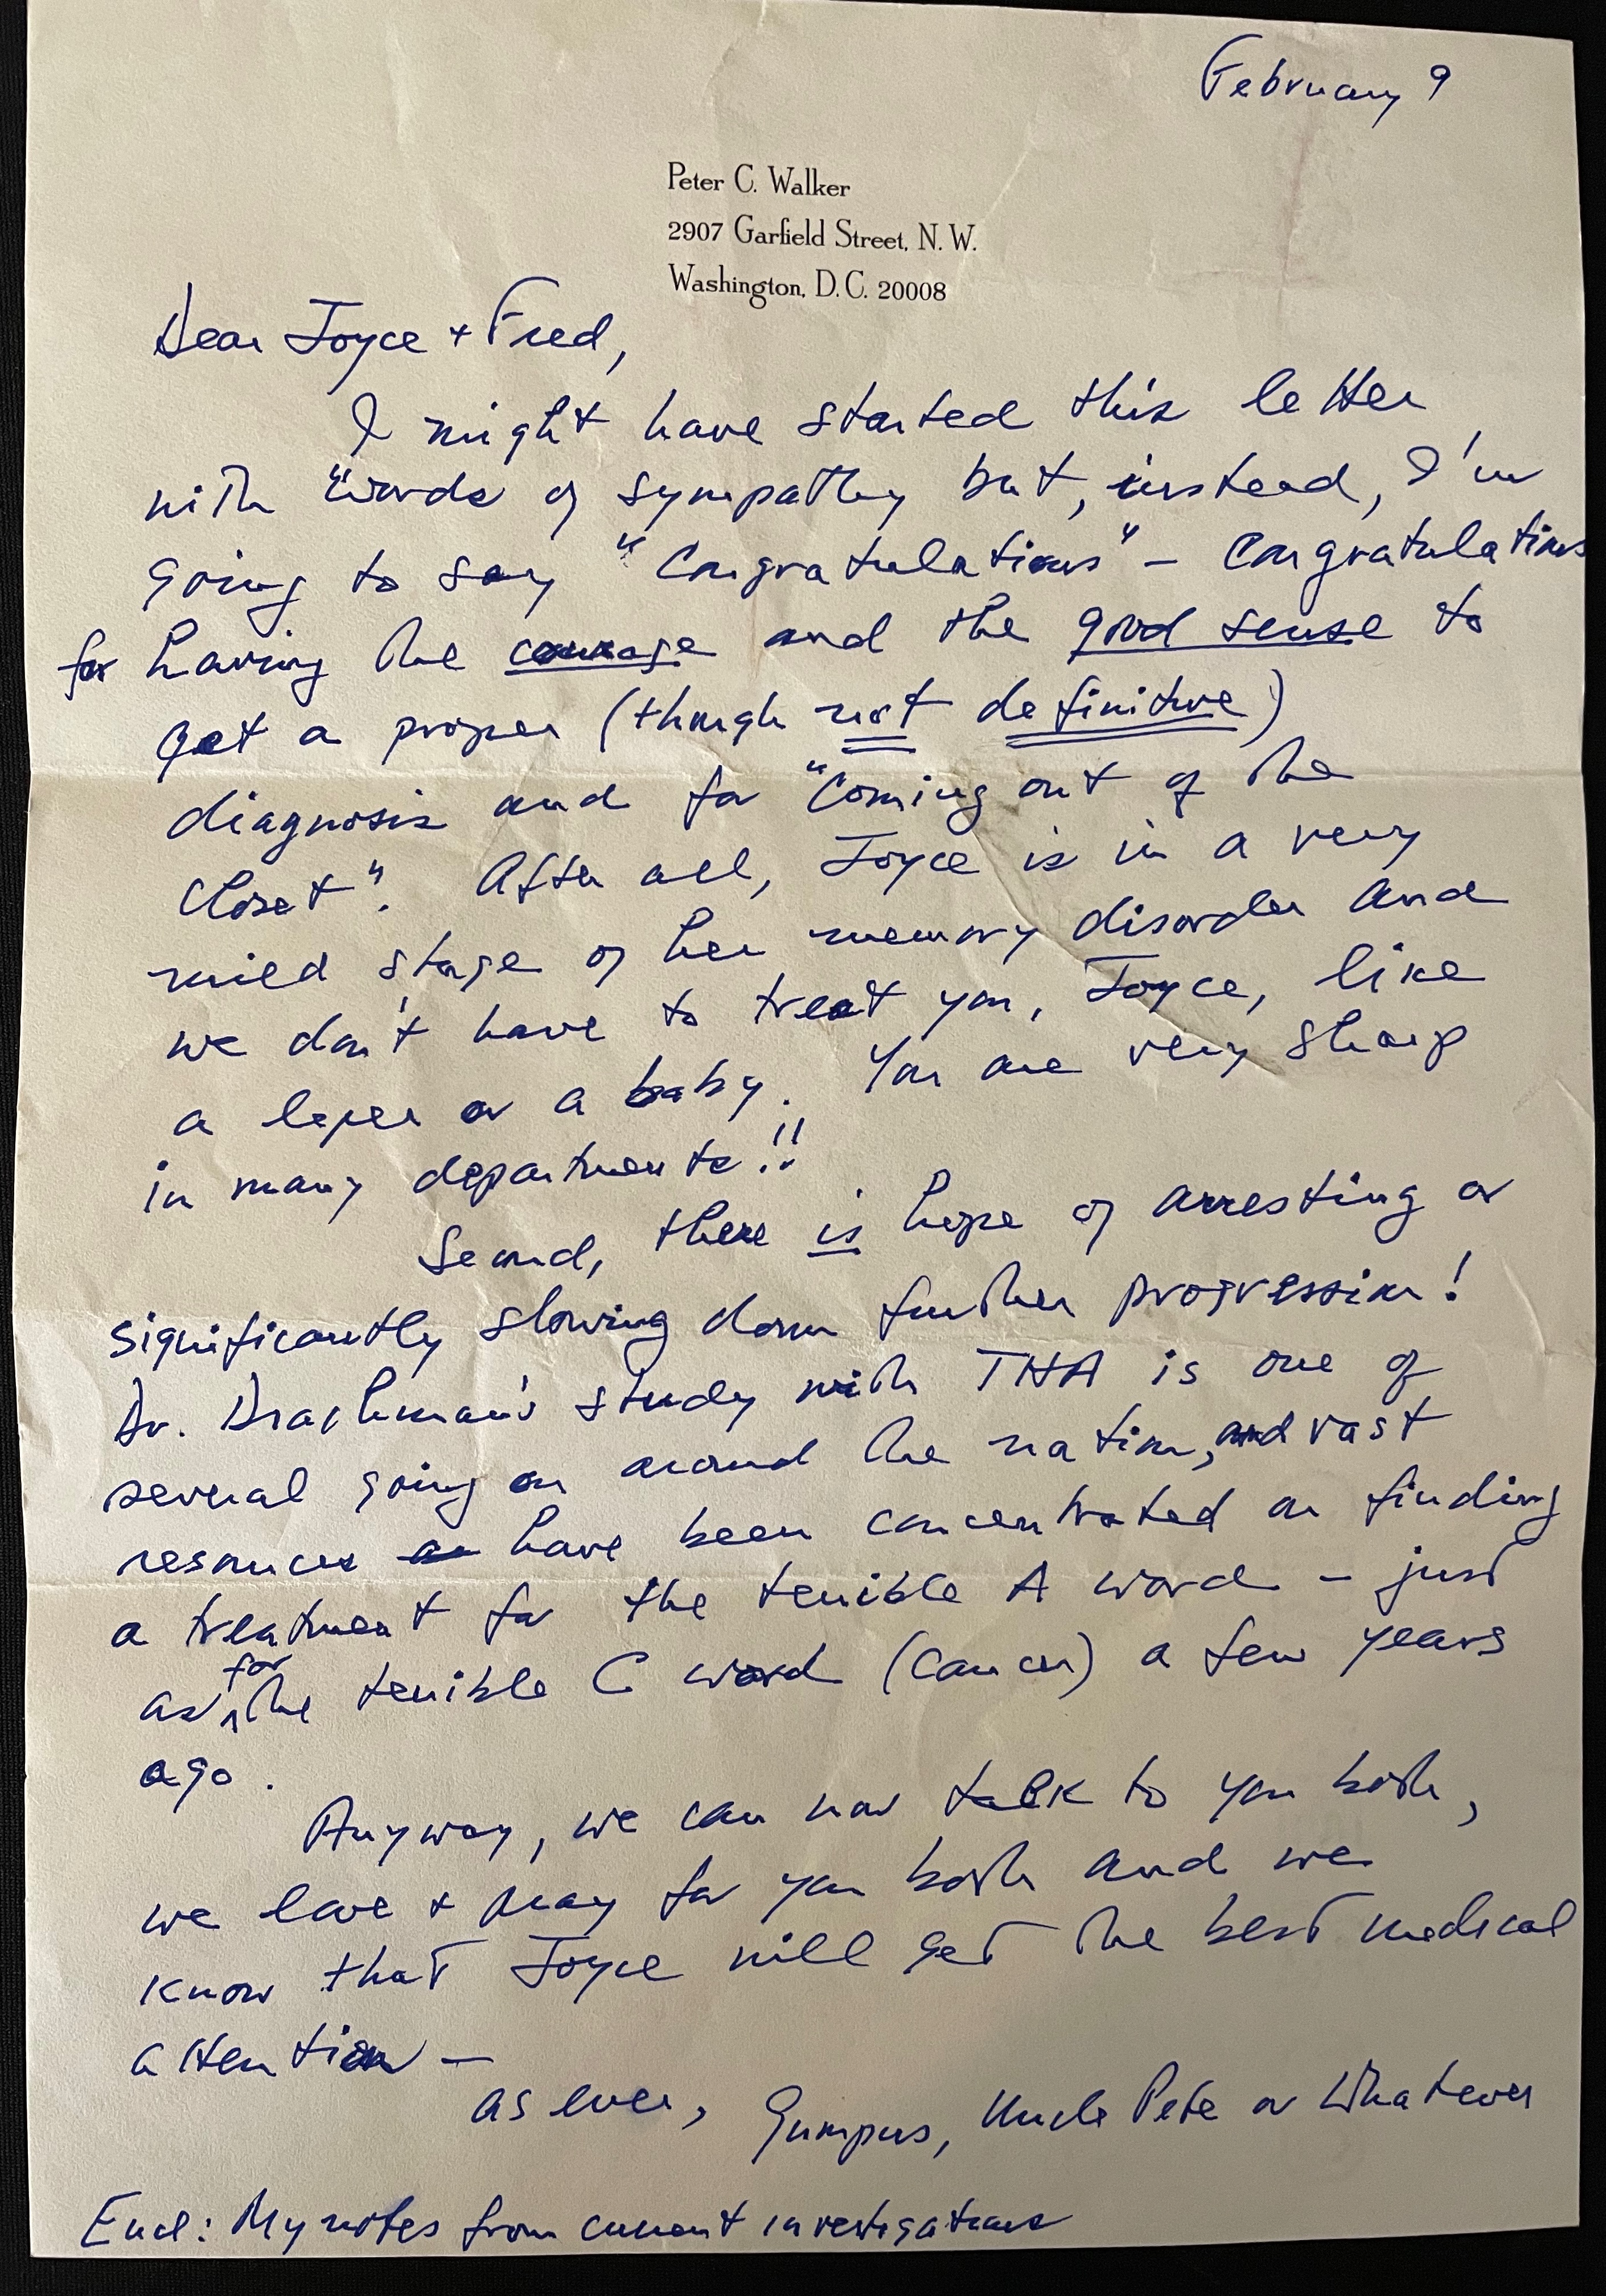 February 9
Peter C. Walker
2907 Garfield Street, N.W.
Washington, D.C. 20008
Dear Joyce + Fred,
I might have started this letter
with "words of sympathy but, instead, I'm
going to say "Congratulations" – Congratulations
for having the courage and the good sense to
get a proper (though not definitive)
diagnosis and for "Coming out of the
Closet". After all, Joyce is in a very
mild stage of her memory disorder and
we don't have to treat you, Joyce, like
a leper or a baby. You are very sharp
in many departments!!
Second, there is hope of arresting or
significantly slowing down further progression!
Dr. Drachman's study with THA is one of
several going on around the nation, and vast
resources have been concentrated on finding
a treatment for the terrible A word – just
as for the terrible C word (cancer) a few years
ago.
Anyway, we can now talk to you both,
we love + pray for you both and we
know that Joyce will get the best medical
attention –
as ever, Gumpus, Uncle Pete or Whatever
Encl: My notes from current investigations